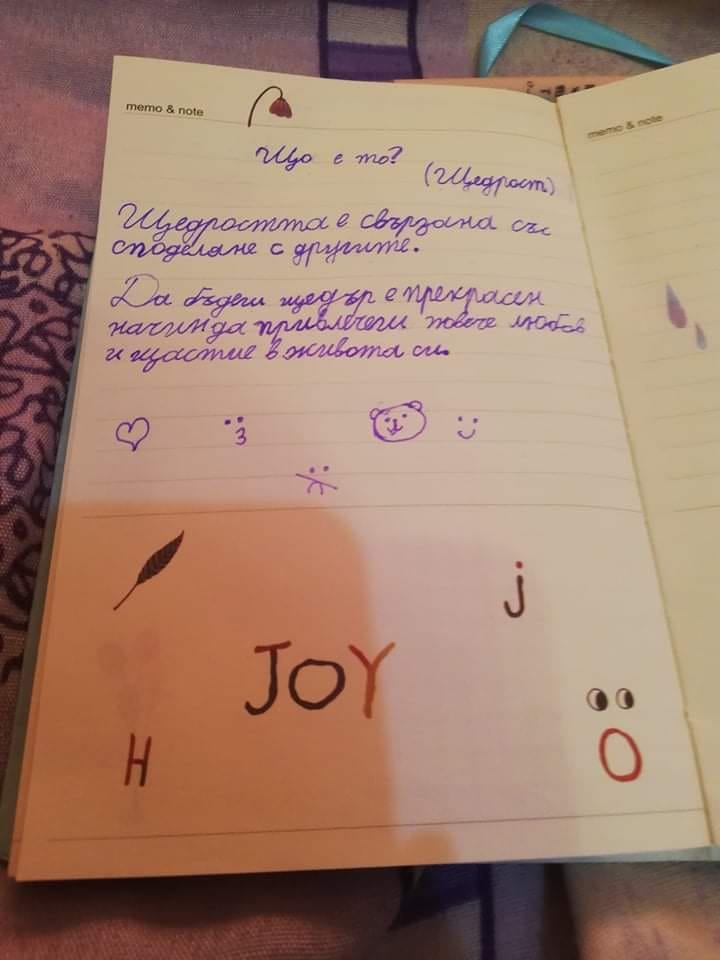 memo & note
memo & note
Що е то?
(Щедрост)
Щедростта е свързана със
споделяне с другите.
Да бъдеш щедър е прекрасен
начин да привлечеш повече любов
и щастие в живота си.
j
JOY
H
O